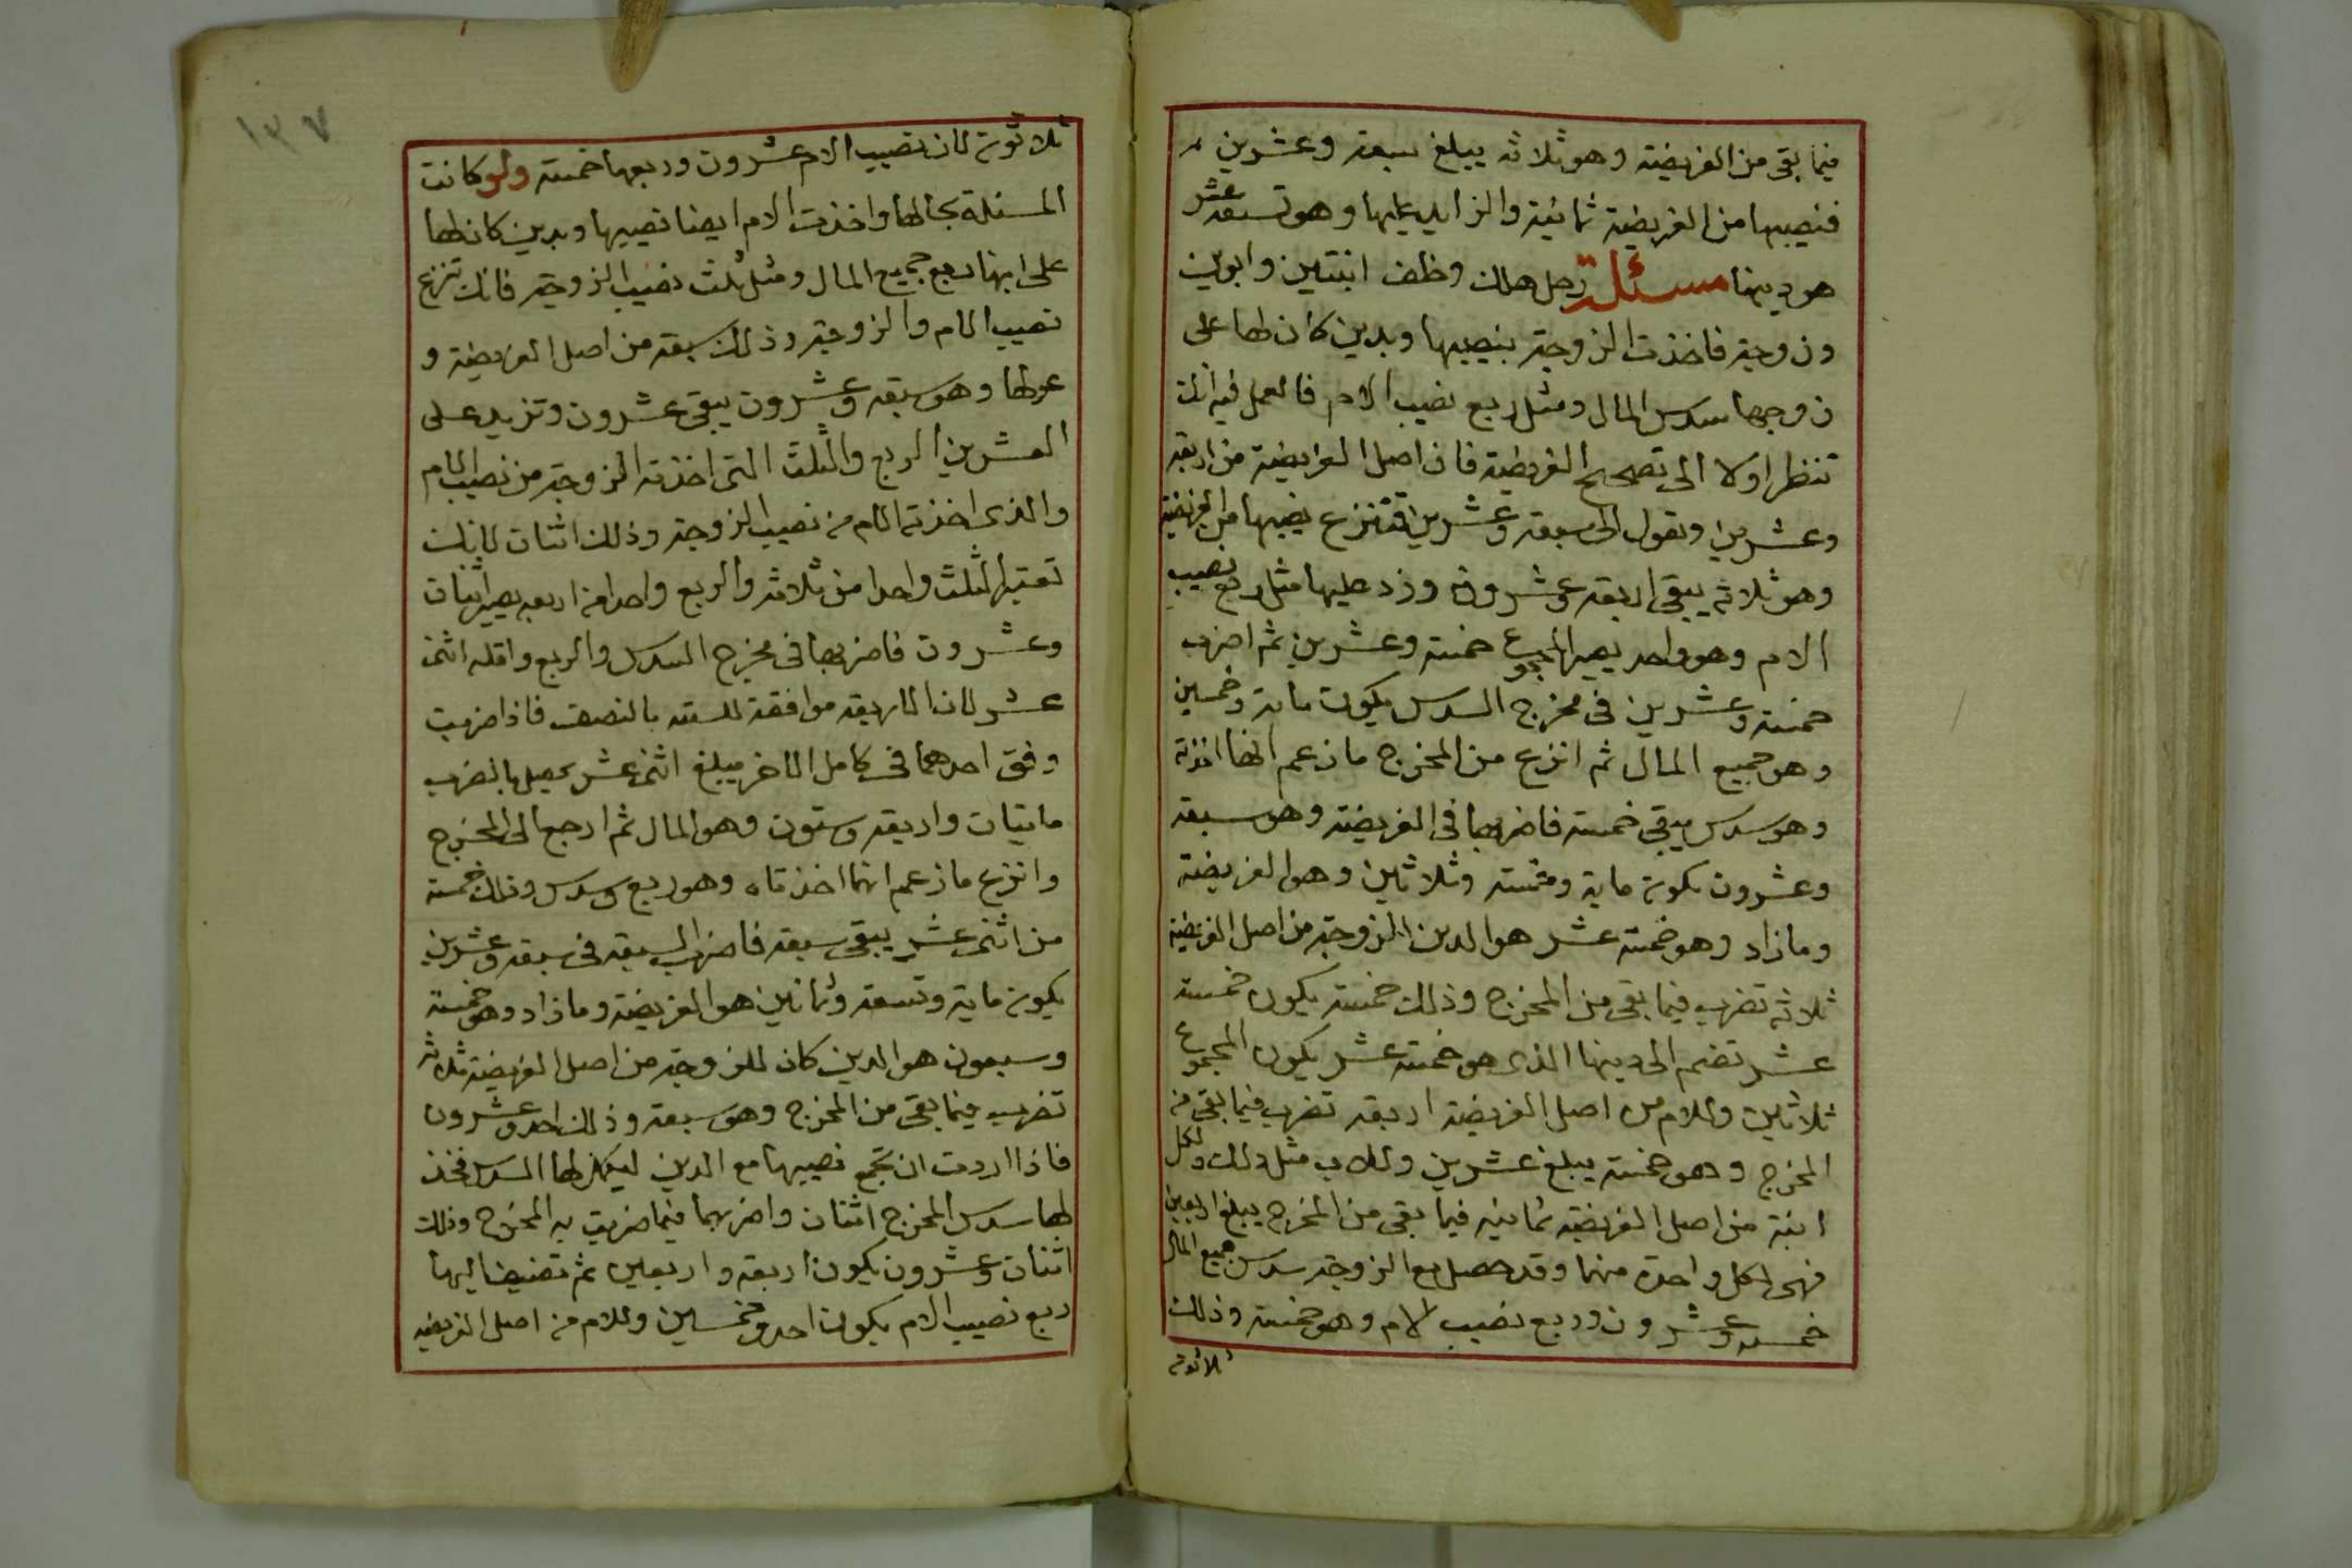 فيما بقى من الفريضة وهو ثلاثه يبلغ سبعة وعشرين
فنصيبها من الفريضة ثمانية والزايد عليها وهو تسعة عشر
هو دينها مسئلة رجل هلك وخلف ابنتين وابوين
وزوجة فاخذت الزوجة بنصيبها وبدين كان لها على
زوجها سدس المال ومثل ربع نصيب الام فالعمل فيه انك
تنظر اولا الى تصحيح الفريضة فان اصل الفريضة من اربعة
وعشرين وتعول الى سبعة وعشرين فتنزع نصيبها من الفريضة
وهو ثلاثة يبقى اربعة وعشرون وزد عليها مثل ربع نصيب
الام وهو واحد يصير المجموع خمسة وعشرين ثم اضرب
خمسة وعشرين في مخرج السدس يكون ماية وخمسين
وهو جميع المال ثم انزع من المخرج ما زعم انها اخذته
وهو سدس يبقى خمسة فاضربها في الفريضة وهو سبعة
وعشرون يكون ماية وخمسة وثلاثين وهو الفريضة
وما زاد وهو خمسة عشر هو الدين للزوجة من اصل الفريضة
ثلاثة تضرب فيما بقى من المخرج وذلك خمسة يكون خمسة
عشر تضم الى دينها الذى هو خمسة عشر يكون المجموع
ثلاثين وللام من اصل الفريضة اربعة تضرب فيما بقى من
المخرج وهو خمسة يبلغ عشرين وللاب مثل ذلك ولكل
ابنة من اصل الفريضة ثمانية فيما بقى من المخرج يبلغ اربعين
فهى لكل واحدة منهما وقد حصل مع الزوجة سدس جميع المال
خمسة وعشرون وربع نصيب الام وهو خمسة وذلك
ثلاثون
١٣٧
ثلاثون لان نصيب الام عشرون وربعها خمسة ولو كانت
المسئلة بحالها واخذت الام ايضا نصيبها وبدين كان لها
على ابنها ربع جميع المال ومثل ثلث نصيب الزوجة فانك تنزع
نصيب الام والزوجة وذلك سبعة من اصل الفريضة و
عولها وهو سبعة وعشرون يبقى عشرون وتزيد على
العشرين الربع والثلث التى اخذته الزوجة من نصيب الام
والذى اخذته الام من نصيب الزوجة وذلك اثنان لانك
تعتبر الثلث واحدا من ثلاثة والربع واحدا من اربعه يصير اثنان
وعشرون فاضربها في مخرج السدس والربع واقله اثنى
عشر لان الاربعة موافقة للستة بالنصف فاذا ضربت
وفق احدهما في كامل الاخر يبلغ اثنى عشر يحصل بالضرب
مايتان واربعة وستون وهو المال ثم ارجع الى المخرج
وانزع ما زعم انهما اخذتاه وهو ربع وسدس وذلك خمسة
من اثنى عشر يبقى سبعة فاضرب السبعة في سبعة وعشرين
يكون ماية وتسعة وثمانين هو الفريضة وما زاد وهو خمسة
وسبعون هو الدين كان للزوجة من اصل الفريضة ثلاثة
تضرب فيما بقى من المخرج وهو سبعة وذلك احد وعشرون
فاذا اردت ان تجمع نصيبها مع الدين ليكمل لها السدس فخذ
لها سدس المخرج اثنان واضربهما فيما ضربت به المخرج وذلك
اثنان وعشرون يكون اربعة واربعين ثم تضيف اليها
ربع نصيب الام يكون احد وخمسين وللام من اصل الفريضه